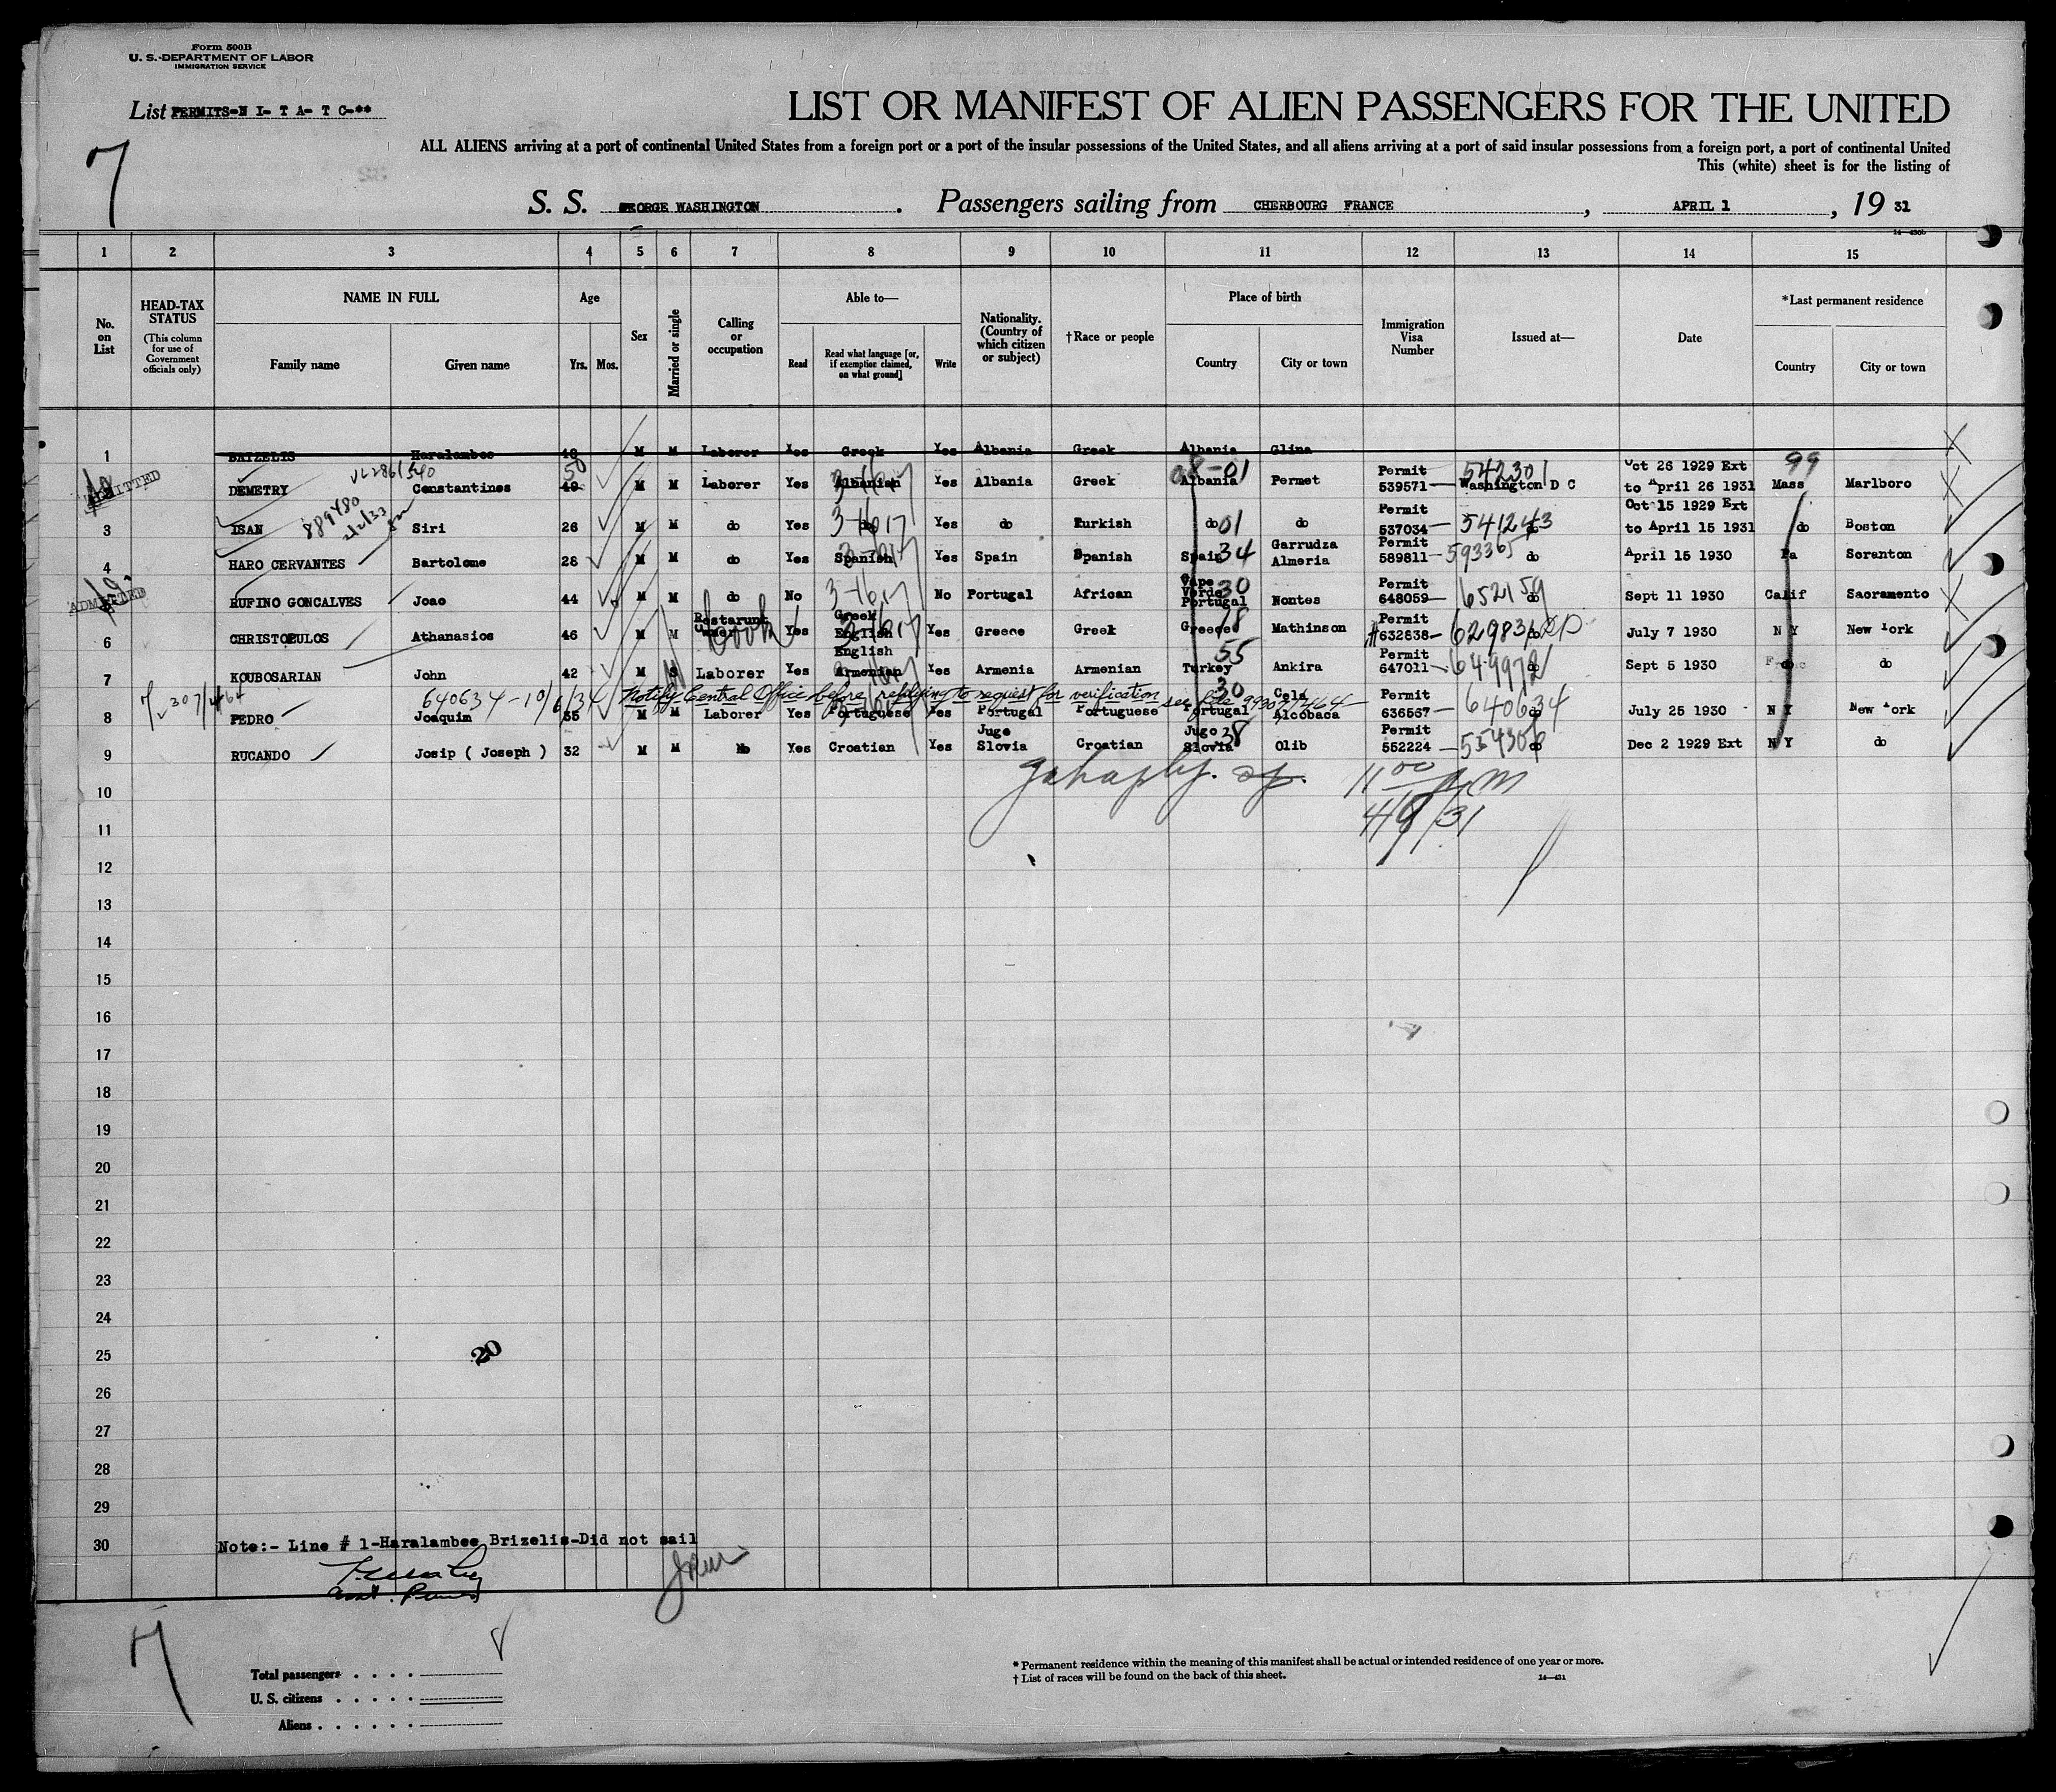 Form 500B
U. S. DEPARTMENT OF LABOR
IMMIGRATION SERVICE
List PERMITS-N I- T A- T C-**
LIST OR MANIFEST OF ALIEN PASSENGERS FOR THE UNITED
7
ALL ALIENS arriving at a port of continental United States from a foreign port or a port of the insular possessions of the United States, and all aliens arriving at a port of said insular possessions from a foreign port, a port of continental United
This (white) sheet is for the listing of
S. S. GEORGE WASHINGTON . Passengers sailing from CHERBOURG FRANCE , APRIL 1 , 19 31
1 2 3 4 5 6 7 8 9 10 11 12 13 14 15
No. on List
HEAD-TAX STATUS
(This column for use of Government officials only)
NAME IN FULL
Family name Given name
Age
Yrs. Mos.
Sex
Married or single
Calling or occupation
Able to—
Read Read what language [or, if exemption claimed, on what ground] Write
Nationality. (Country of which citizen or subject)
†Race or people
Place of birth
Country City or town
Immigration Visa Number
Issued at—
Date
*Last permanent residence
Country City or town
1 BRIZELIS Haralambee M M Laborer Yes Greek Yes Albania Greek Albania Glina
ADMITTED DEMETRY Constantinos 49 50 M M Laborer Yes Albanian Yes Albania Greek Albania Permet Permit 539571 542301 Washington D C Oct 26 1929 Ext to April 26 1931 99 Mass Marlboro
3 ISAN 889480 Siri 26 M M do Yes do 3-1617 Yes do Turkish do 01 do Permit 537034 541243 do Oct 15 1929 Ext to April 15 1931 do Boston
4 HARO CERVANTES Bartolome 28 M M do Yes Spanish Yes Spain Spanish Spain 34 Garrudza Almeria Permit 589811 593365 do April 15 1930 Pa Scranton
ADMITTED RUFINO GONCALVES Joao 44 M M do No 3-1617 No Portugal African Cape Verde Portugal 30 Nontes Permit 648059 652159 do Sept 11 1930 Calif Sacramento
6 CHRISTOPULOS Athanasios 46 M M Restarunt Owner Cook Yes Greek English Yes Greece Greek Greece 18 Mathinson Permit #632838 629836 do July 7 1930 N Y New York
7 KOUBOSARIAN John 42 M S M Laborer Yes English Armenian Yes Armenia Armenian Turkey 55 Ankira Permit 647011 649972 do Sept 5 1930 do do
640634-10/6/34 Notify Central Office before replying to request for verification see file 99307/464
8 PEDRO Joaquim 35 M M Laborer Yes Portuguese Yes Portugal Portuguese Portugal 30 Cela Alcobaca Permit 636567 640634 do July 25 1930 N Y New York
9 RUCANDO Josip ( Joseph ) 32 M M No Yes Croatian Yes Jugo Slovia Croatian Jugo Slovia 38 Olib Permit 552224 554306 do Dec 2 1929 Ext N Y do
10 11 00
11 4/9/31
12
13
14
15
16
17
18
19
20
21
22
23
24
25 20
26
27
28
29
30 Note:- Line # 1-Haralambee Brizelis-Did not sail
7
Total passengers
U. S. citizens
Aliens
* Permanent residence within the meaning of this manifest shall be actual or intended residence of one year or more.
† List of races will be found on the back of this sheet.
14—431